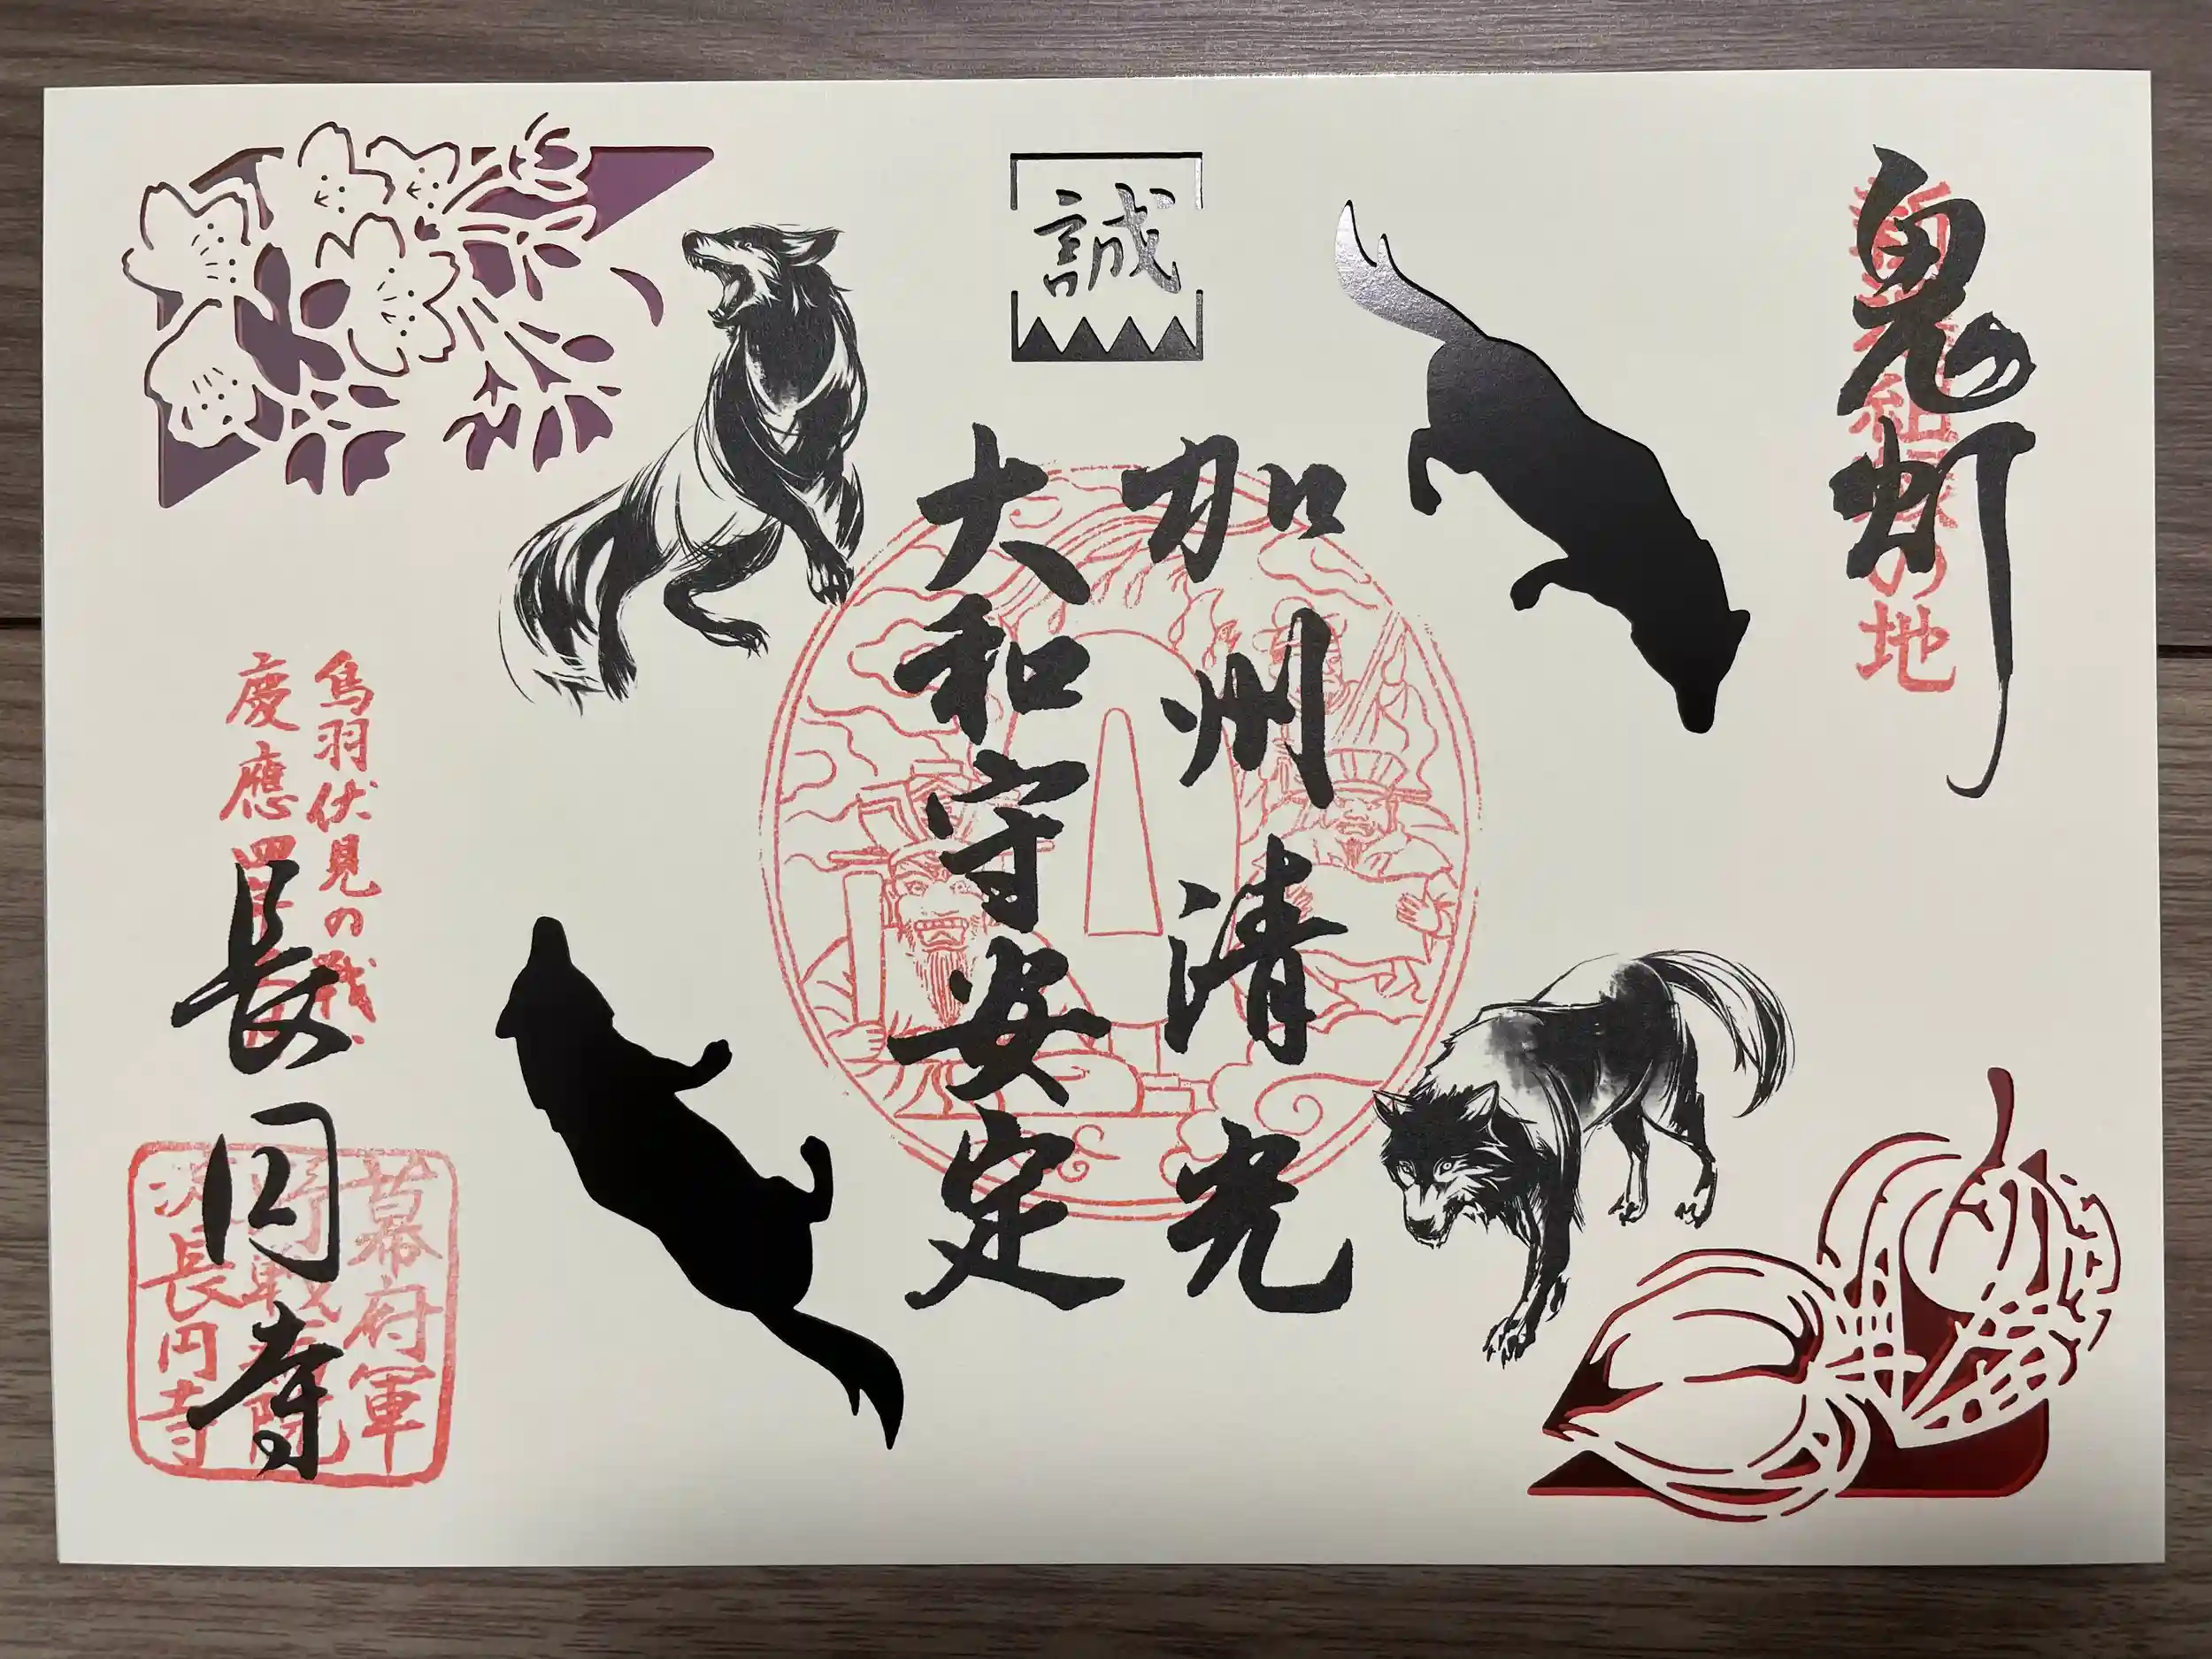 鬼灯
新選組
の地
誠
加州清光
大和守安定
鳥羽伏見の戦い
慶應四年
長円寺
幕府軍
野戦病院
淀長円寺